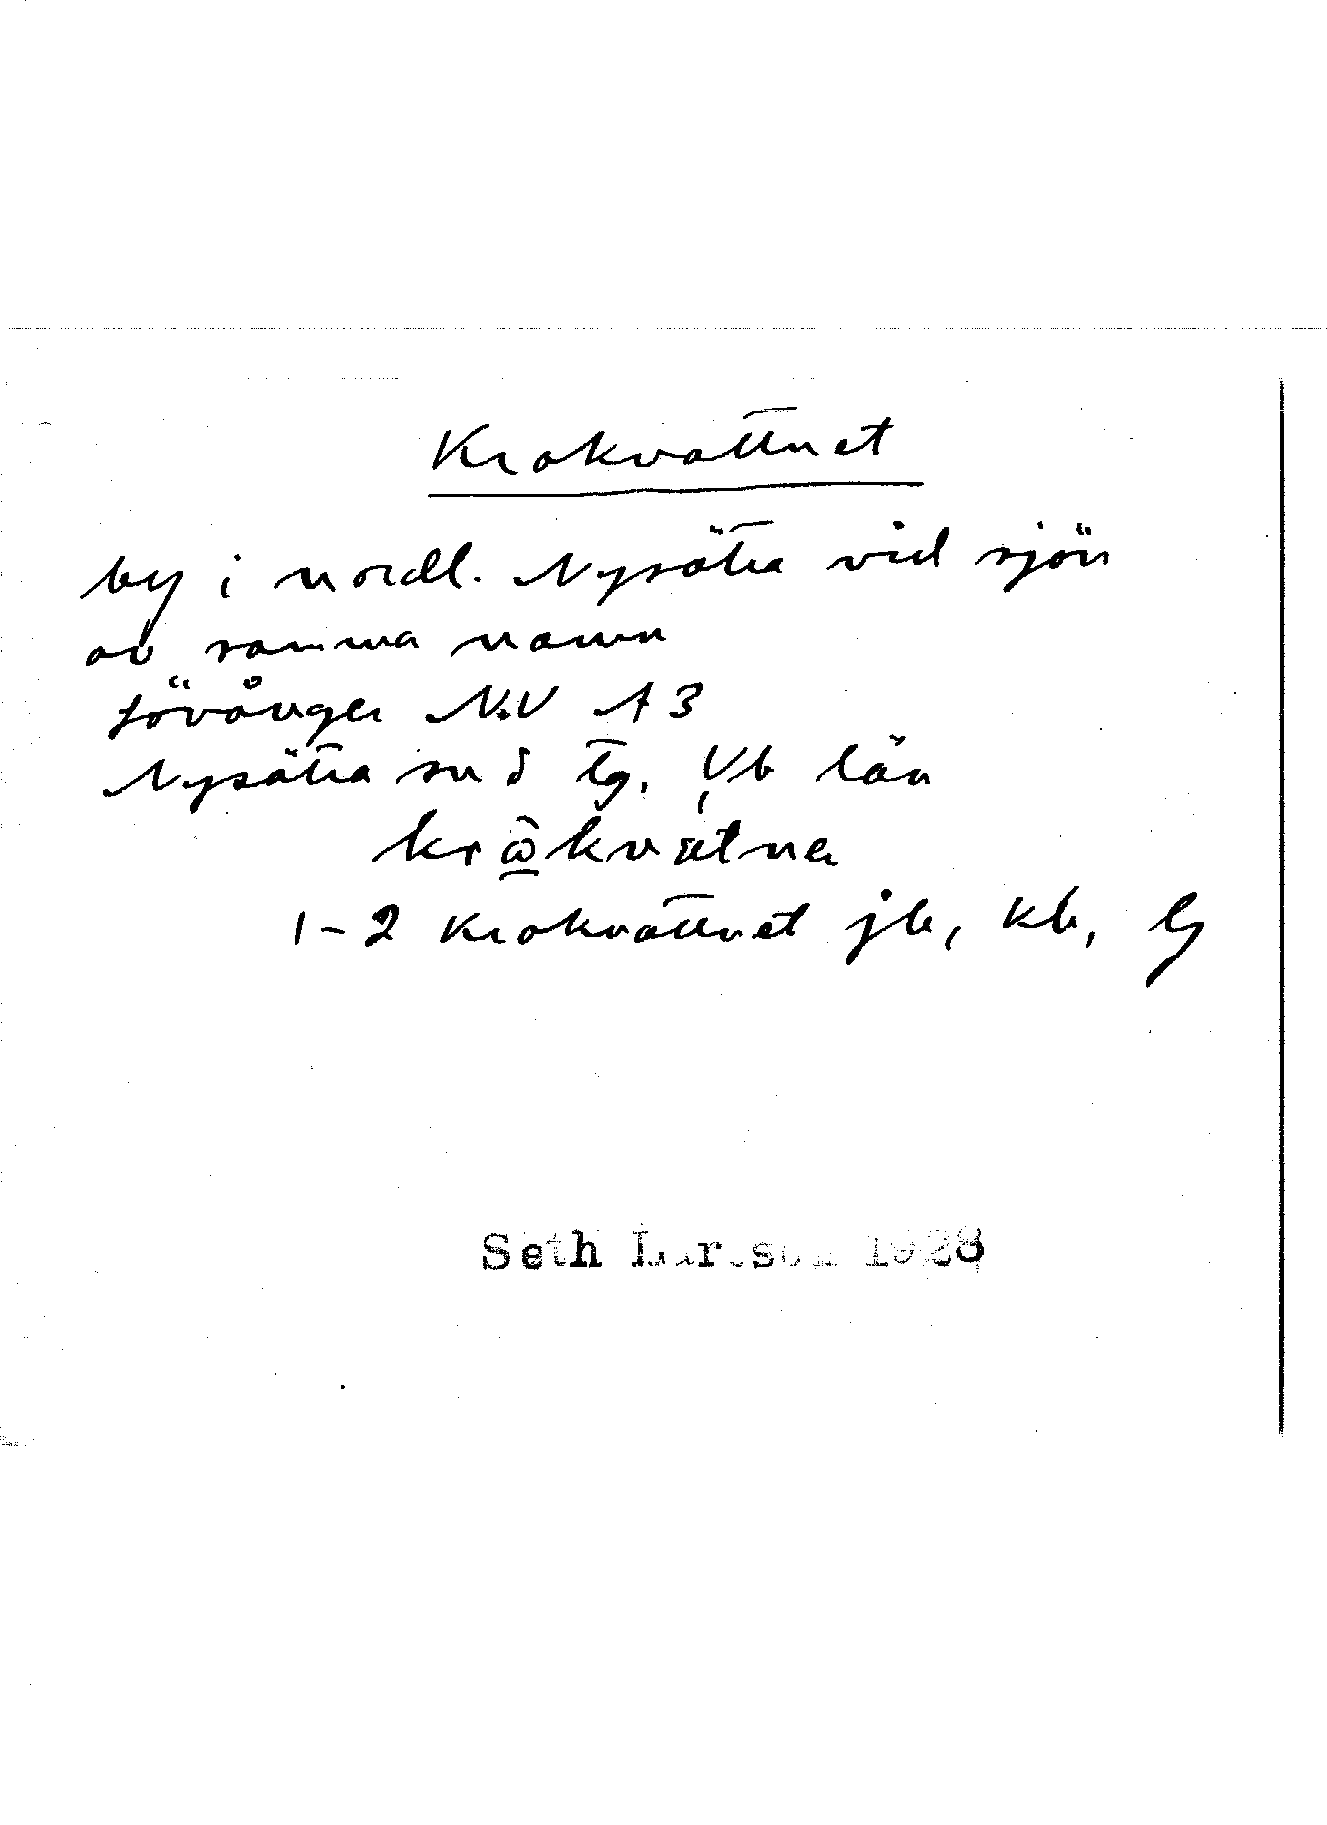 Krokvattnet
by i nordl. Nysätra vid sjön
av samma namn
Lövånger N.V A3
Nysätra sn o tg. Vb län
1-2 Krokvattnet jb, kb,
Seth Larsson 1928